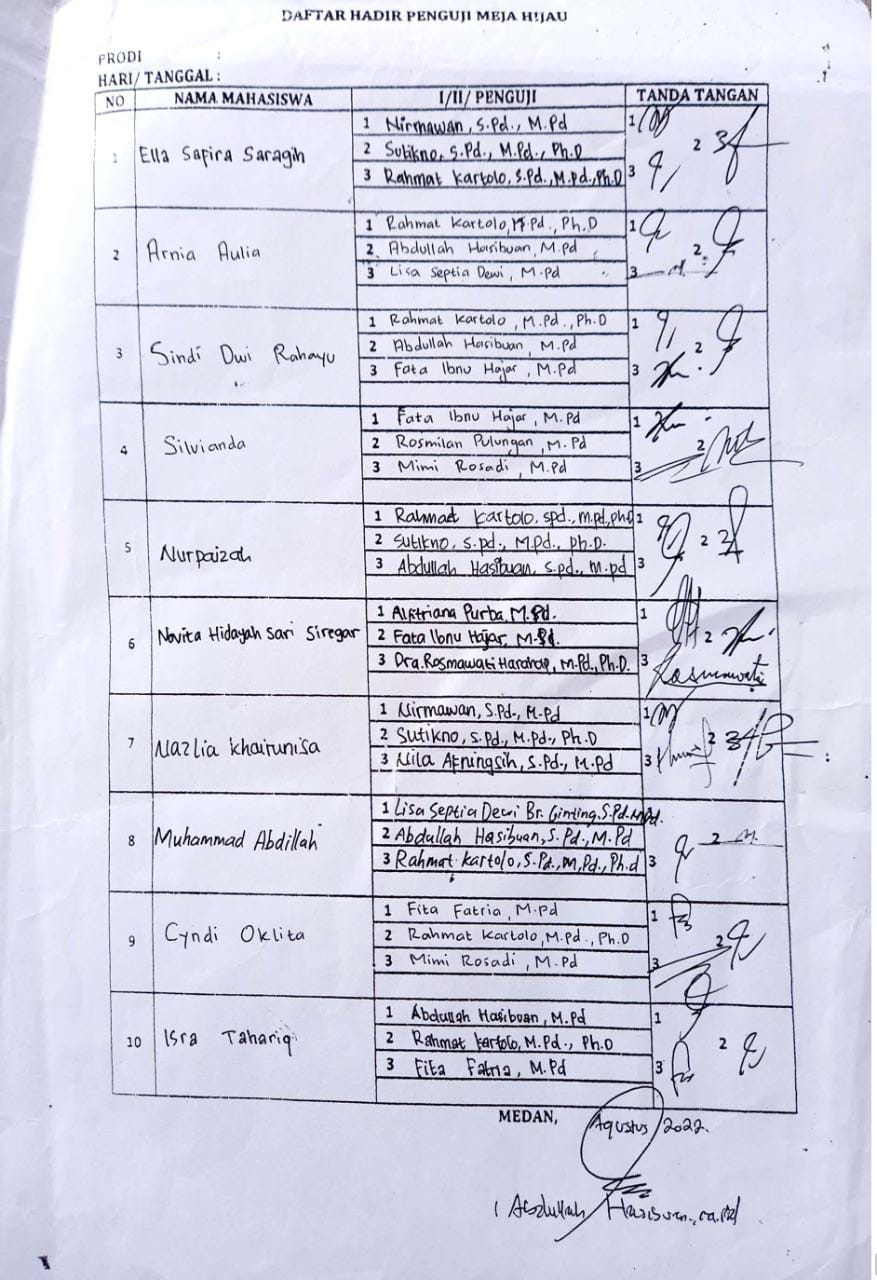 DAFTAR HADIR PENGUJI MEJA HIJAU
PRODI :
HARI/ TANGGAL :
NO NAMA MAHASISWA I/II/ PENGUJI TANDA TANGAN
1 Ella Safira Saragih
1 Nirmawan, S.Pd., M.Pd 1
2 Sutikno, S.Pd., M.Pd., Ph.D 2
3 Rahmat Kartolo, S.Pd., M.Pd., Ph.D 3
2 Arnia Aulia
1 Rahmat Kartolo, M.Pd., Ph.D 1
2 Abdullah Hasibuan, M.Pd 2
3 Lisa Septia Dewi, M.Pd 3
3 Sindi Dwi Rahayu
1 Rahmat Kartolo, M.Pd., Ph.D 1
2 Abdullah Hasibuan, M.Pd 2
3 Fata Ibnu Hajar, M.Pd 3
4 Silvianda
1 Fata Ibnu Hajar, M.Pd 1
2 Rosmilan Pulungan, M.Pd 2
3 Mimi Rosadi, M.Pd 3
5 Nurpaizah
1 Rahmat Kartolo, spd., m.pd, ph.d 1
2 Sutikno, s.pd., M.Pd., ph.D. 2
3 Abdullah Hasibuan, s.pd., m.pd 3
6 Novita Hidayah Sari Siregar
1 Alftriana Purba, M.Pd. 1
2 Fata Ibnu Hajar, M.Pd. 2
3 Dra. Rosmawati Harahap, M.Pd., Ph.D. 3
7 Nazlia Khairunisa
1 Nirmawan, S.Pd., M.Pd 1
2 Sutikno, S.Pd., M.Pd., Ph.D 2
3 Nila Afningsih, S.Pd., M.Pd 3
8 Muhammad Abdillah
1 Lisa Septia Dewi Br. Ginting, S.Pd. M.Pd.
2 Abdullah Hasibuan, S.Pd., M.Pd 2
3 Rahmat Kartolo, S.Pd., M.Pd., Ph.d 3
9 Cyndi Oklita
1 Fita Fatria, M.Pd 1
2 Rahmat Kartolo, M.Pd., Ph.D 2
3 Mimi Rosadi, M.Pd 3
10 Isra Tahariq
1 Abdullah Hasibuan, M.Pd 1
2 Rahmat Kartolo, M.Pd., Ph.D 2
3 Fita Fatria, M.Pd 3
MEDAN, Agustus 2022.
( Abdullah Hasibuan, M.Pd